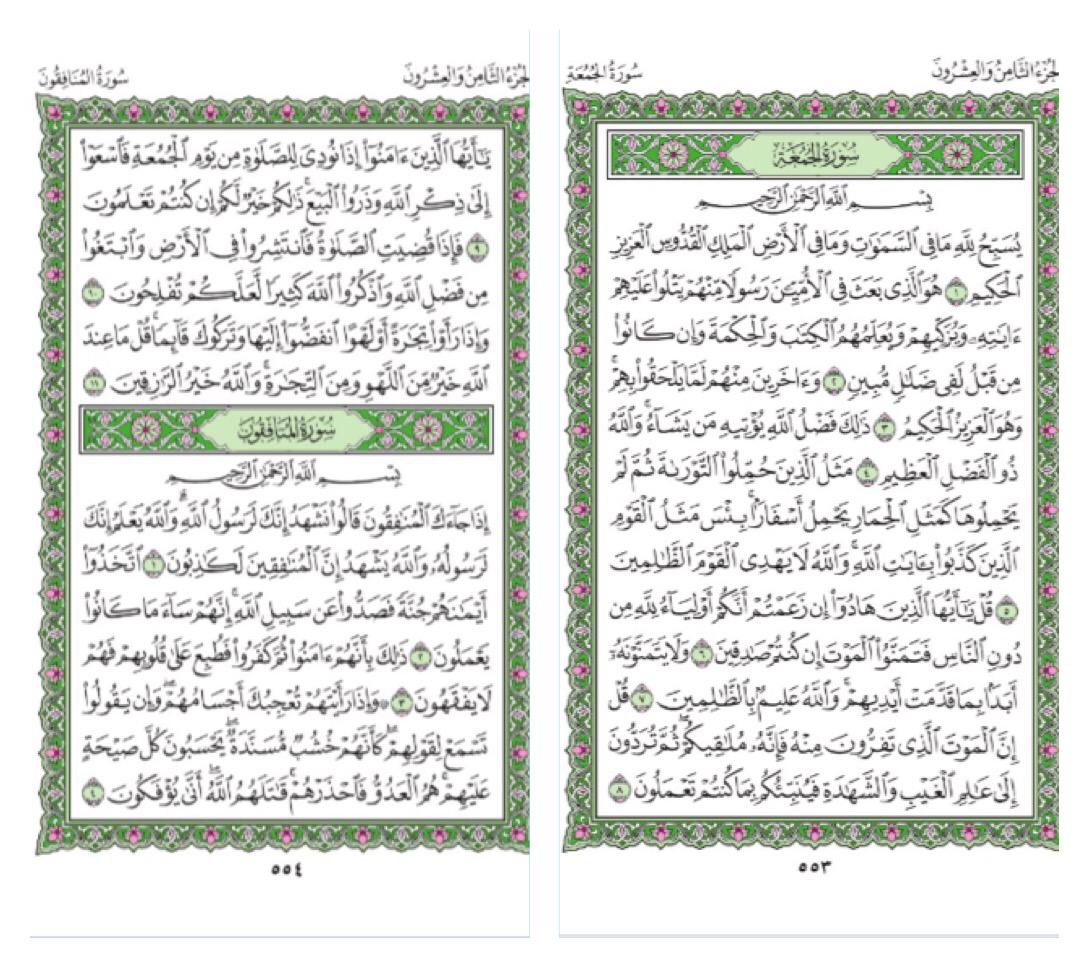 الجُزْءُ الثَّامِنُ وَالعِشْرُونَ
سُورَةُ الجُمُعَة
سُورَةُ الجُمُعَةِ
بِسْمِ ٱللَّهِ ٱلرَّحْمَٰنِ ٱلرَّحِيمِ
يُسَبِّحُ لِلَّهِ مَا فِي ٱلسَّمَٰوَٰتِ وَمَا فِي ٱلْأَرْضِ ٱلْمَلِكِ ٱلْقُدُّوسِ ٱلْعَزِيزِ
ٱلْحَكِيمِ ١ هُوَ ٱلَّذِي بَعَثَ فِي ٱلْأُمِّيِّـۧنَ رَسُولًا مِّنْهُمْ يَتْلُوا۟ عَلَيْهِمْ
ءَايَٰتِهِۦ وَيُزَكِّيهِمْ وَيُعَلِّمُهُمُ ٱلْكِتَٰبَ وَٱلْحِكْمَةَ وَإِن كَانُوا۟
مِن قَبْلُ لَفِي ضَلَٰلٍ مُّبِينٍ ٢ وَءَاخَرِينَ مِنْهُمْ لَمَّا يَلْحَقُوا۟ بِهِمْ ۚ
وَهُوَ ٱلْعَزِيزُ ٱلْحَكِيمُ ٣ ذَٰلِكَ فَضْلُ ٱللَّهِ يُؤْتِيهِ مَن يَشَآءُ ۚ وَٱللَّهُ
ذُو ٱلْفَضْلِ ٱلْعَظِيمِ ٤ مَثَلُ ٱلَّذِينَ حُمِّلُوا۟ ٱلتَّوْرَىٰةَ ثُمَّ لَمْ
يَحْمِلُوهَا كَمَثَلِ ٱلْحِمَارِ يَحْمِلُ أَسْفَارًۢا ۚ بِئْسَ مَثَلُ ٱلْقَوْمِ
ٱلَّذِينَ كَذَّبُوا۟ بِـَٔايَٰتِ ٱللَّهِ ۚ وَٱللَّهُ لَا يَهْدِي ٱلْقَوْمَ ٱلظَّٰلِمِينَ
٥ قُلْ يَٰٓأَيُّهَا ٱلَّذِينَ هَادُوٓا۟ إِن زَعَمْتُمْ أَنَّكُمْ أَوْلِيَآءُ لِلَّهِ مِن
دُونِ ٱلنَّاسِ فَتَمَنَّوُا۟ ٱلْمَوْتَ إِن كُنتُمْ صَٰدِقِينَ ٦ وَلَا يَتَمَنَّوْنَهُۥٓ
أَبَدًۢا بِمَا قَدَّمَتْ أَيْدِيهِمْ ۚ وَٱللَّهُ عَلِيمٌۢ بِٱلظَّٰلِمِينَ ٧ قُلْ
إِنَّ ٱلْمَوْتَ ٱلَّذِي تَفِرُّونَ مِنْهُ فَإِنَّهُۥ مُلَٰقِيكُمْ ۖ ثُمَّ تُرَدُّونَ
إِلَىٰ عَٰلِمِ ٱلْغَيْبِ وَٱلشَّهَٰدَةِ فَيُنَبِّئُكُم بِمَا كُنتُمْ تَعْمَلُونَ ٨
٥٥٣
الجُزْءُ الثَّامِنُ وَالعِشْرُونَ
سُورَةُ المُنَافِقُونَ
يَٰٓأَيُّهَا ٱلَّذِينَ ءَامَنُوٓا۟ إِذَا نُودِيَ لِلصَّلَوٰةِ مِن يَوْمِ ٱلْجُمُعَةِ فَٱسْعَوْا۟
إِلَىٰ ذِكْرِ ٱللَّهِ وَذَرُوا۟ ٱلْبَيْعَ ۚ ذَٰلِكُمْ خَيْرٌ لَّكُمْ إِن كُنتُمْ تَعْلَمُونَ
٩ فَإِذَا قُضِيَتِ ٱلصَّلَوٰةُ فَٱنتَشِرُوا۟ فِي ٱلْأَرْضِ وَٱبْتَغُوا۟
مِن فَضْلِ ٱللَّهِ وَٱذْكُرُوا۟ ٱللَّهَ كَثِيرًا لَّعَلَّكُمْ تُفْلِحُونَ ١٠
وَإِذَا رَأَوْا۟ تِجَٰرَةً أَوْ لَهْوًا ٱنفَضُّوٓا۟ إِلَيْهَا وَتَرَكُوكَ قَآئِمًا ۚ قُلْ مَا عِندَ
ٱللَّهِ خَيْرٌ مِّنَ ٱللَّهْوِ وَمِنَ ٱلتِّجَٰرَةِ ۚ وَٱللَّهُ خَيْرُ ٱلرَّٰزِقِينَ ١١
سُورَةُ المُنَافِقُونَ
بِسْمِ ٱللَّهِ ٱلرَّحْمَٰنِ ٱلرَّحِيمِ
إِذَا جَآءَكَ ٱلْمُنَٰفِقُونَ قَالُوا۟ نَشْهَدُ إِنَّكَ لَرَسُولُ ٱللَّهِ ۗ وَٱللَّهُ يَعْلَمُ إِنَّكَ
لَرَسُولُهُۥ وَٱللَّهُ يَشْهَدُ إِنَّ ٱلْمُنَٰفِقِينَ لَكَٰذِبُونَ ١ ٱتَّخَذُوٓا۟
أَيْمَٰنَهُمْ جُنَّةً فَصَدُّوا۟ عَن سَبِيلِ ٱللَّهِ ۚ إِنَّهُمْ سَآءَ مَا كَانُوا۟
يَعْمَلُونَ ٢ ذَٰلِكَ بِأَنَّهُمْ ءَامَنُوا۟ ثُمَّ كَفَرُوا۟ فَطُبِعَ عَلَىٰ قُلُوبِهِمْ فَهُمْ
لَا يَفْقَهُونَ ٣ ۞ وَإِذَا رَأَيْتَهُمْ تُعْجِبُكَ أَجْسَامُهُمْ ۖ وَإِن يَقُولُوا۟
تَسْمَعْ لِقَوْلِهِمْ ۖ كَأَنَّهُمْ خُشُبٌ مُّسَنَّدَةٌ ۖ يَحْسَبُونَ كُلَّ صَيْحَةٍ
عَلَيْهِمْ ۚ هُمُ ٱلْعَدُوُّ فَٱحْذَرْهُمْ ۚ قَٰتَلَهُمُ ٱللَّهُ ۖ أَنَّىٰ يُؤْفَكُونَ ٤
٥٥٤